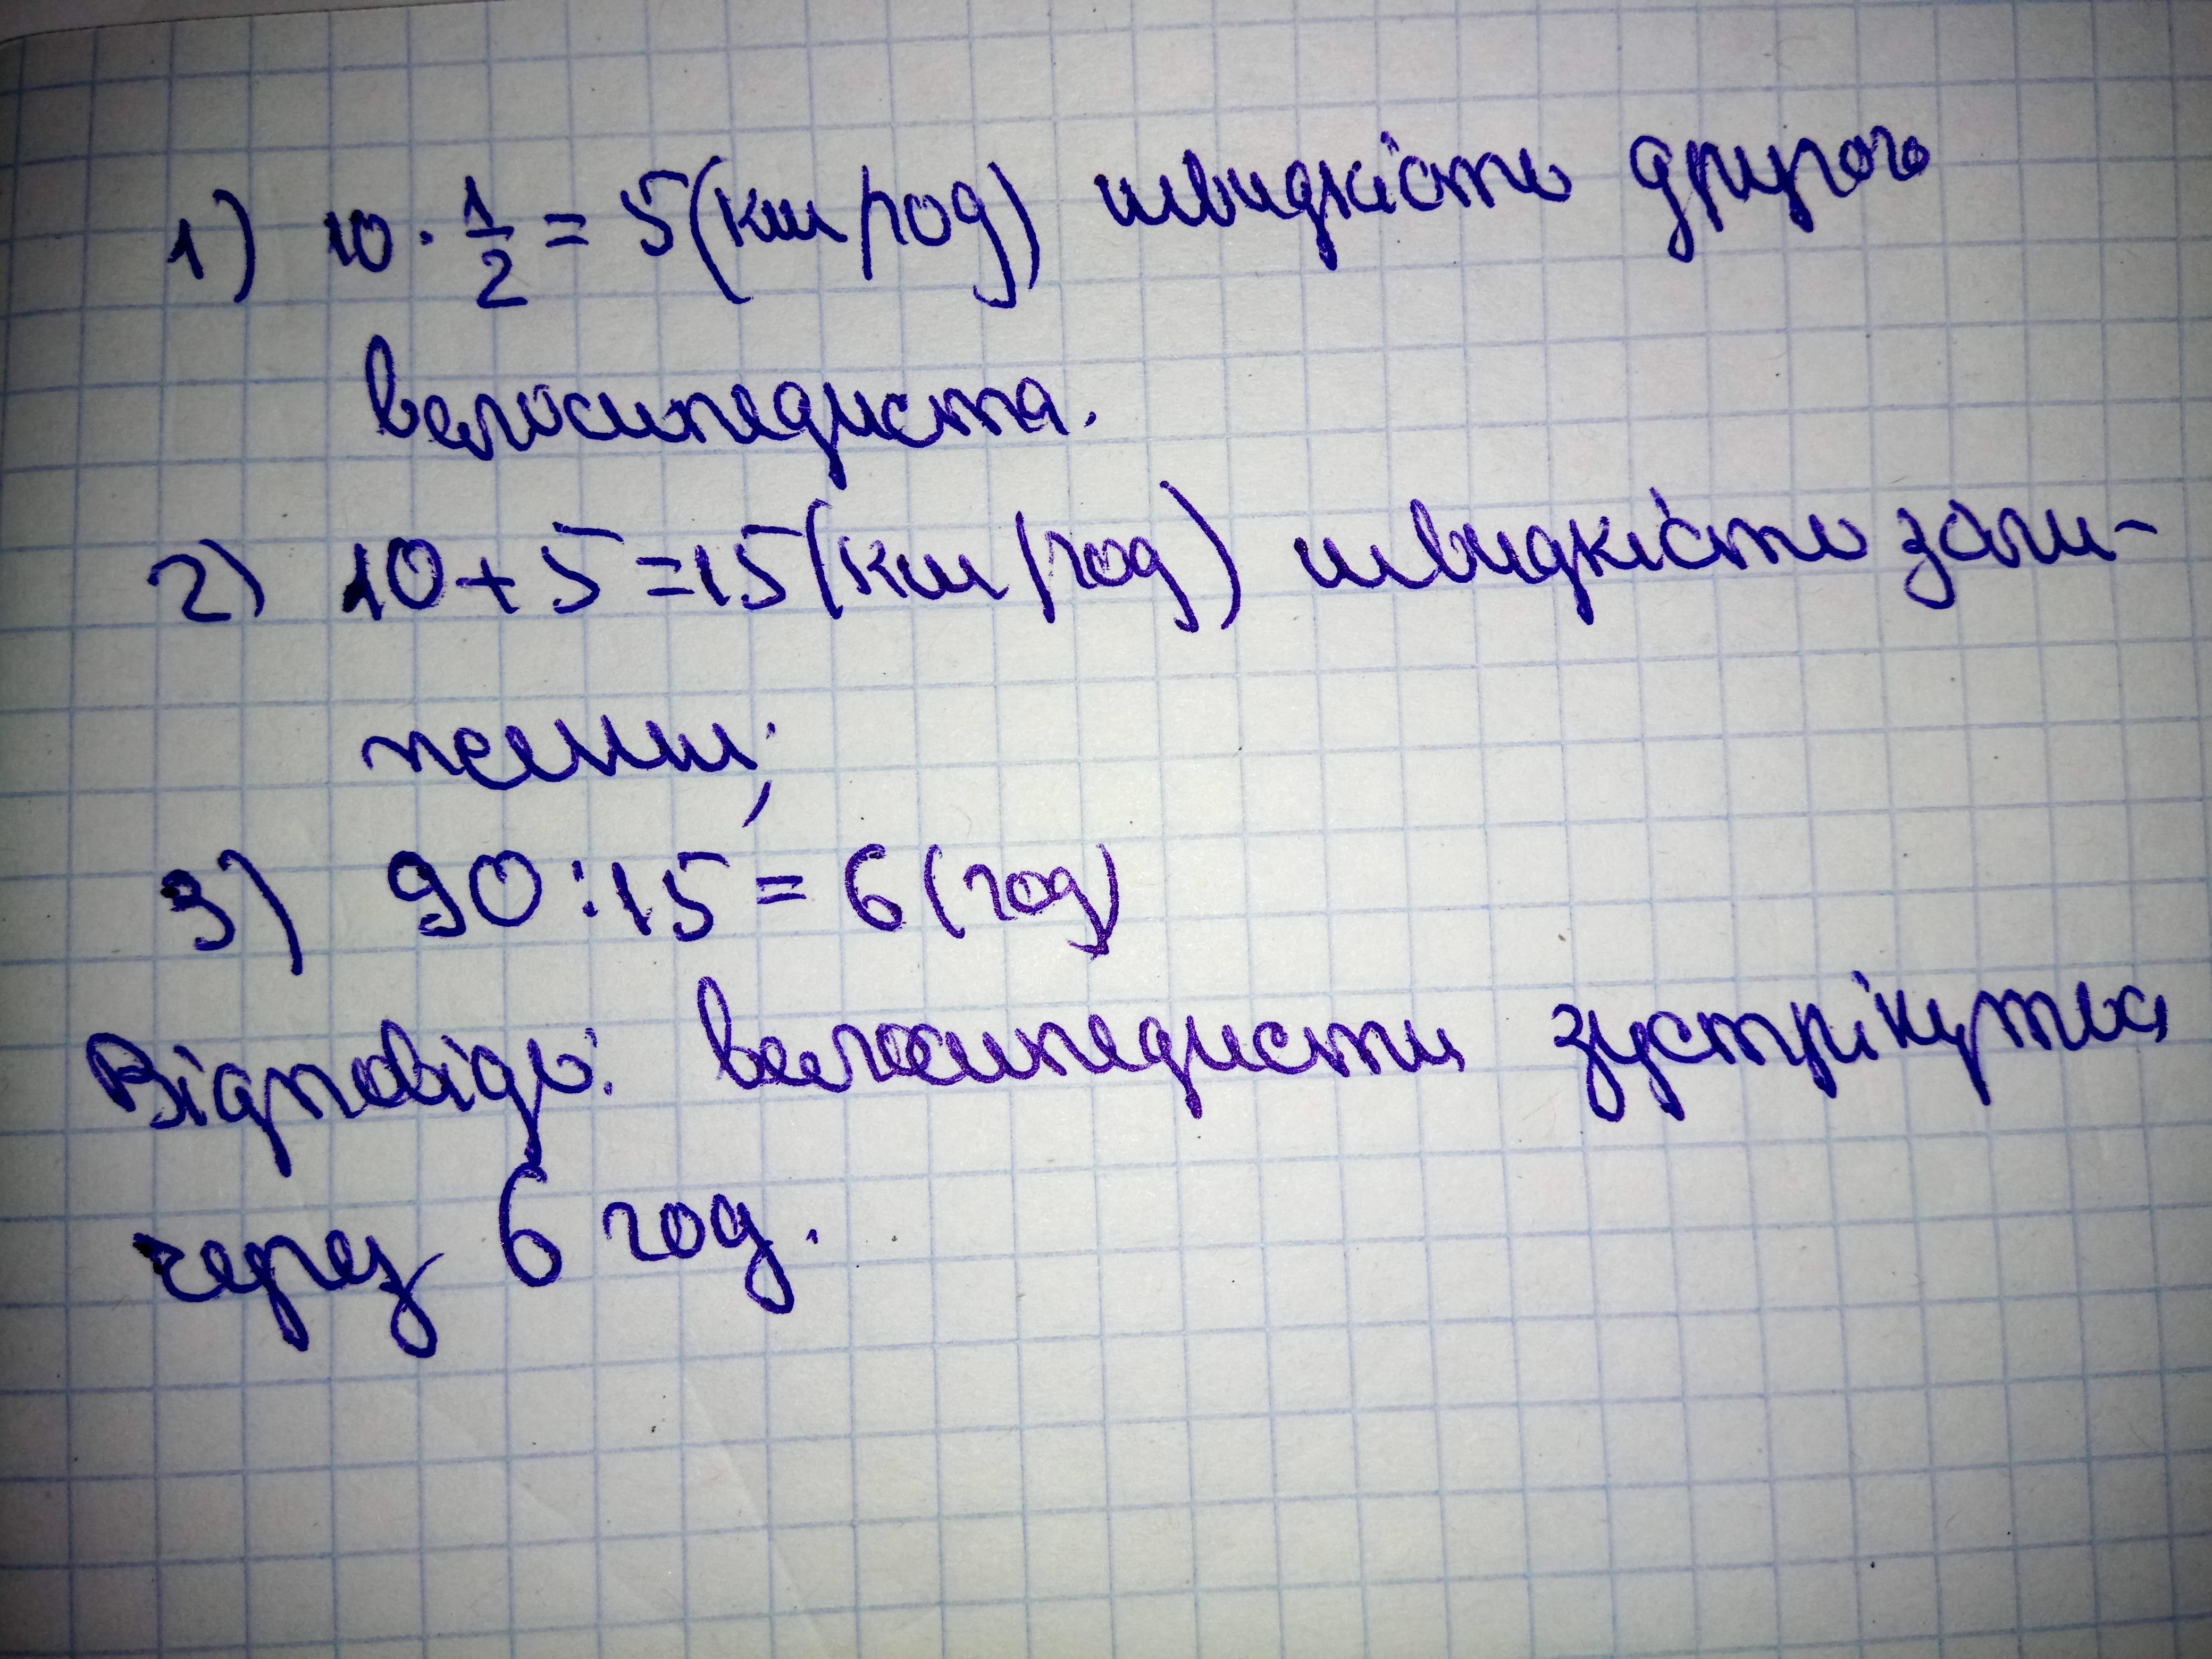 1) 10 · 1/2 = 5 (км/год) швидкість другого
велосипедиста.
2) 10 + 5 = 15 (км/год) швидкість
3) 90 : 15 = 6 (год)
Відповідь: велосипедисти зустрінуться
через 6 год.